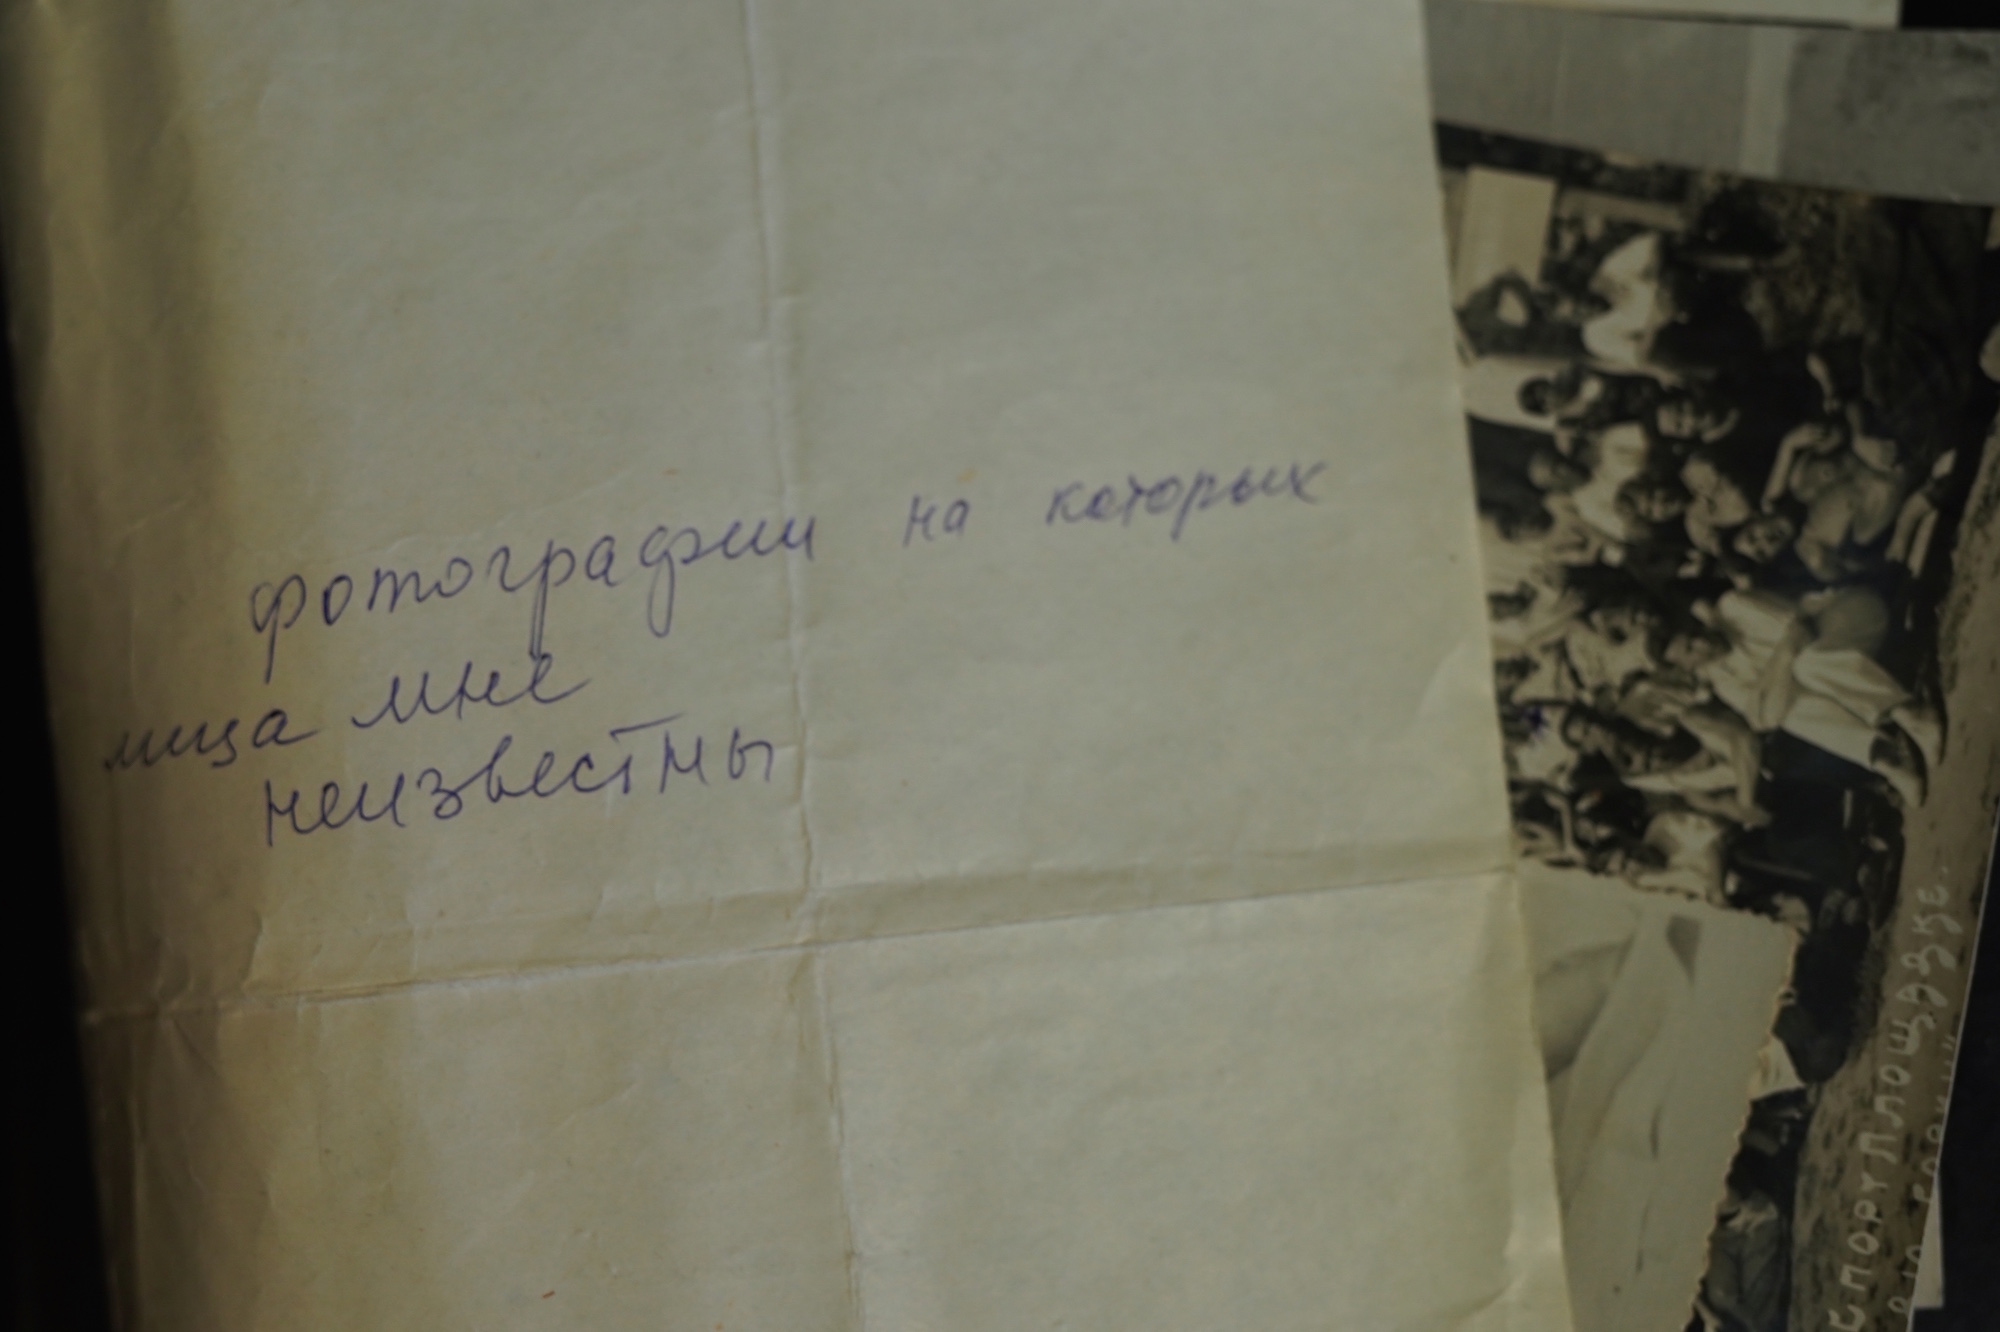 фотографии на которых
лица мне
неизвестны
спортплощадке.